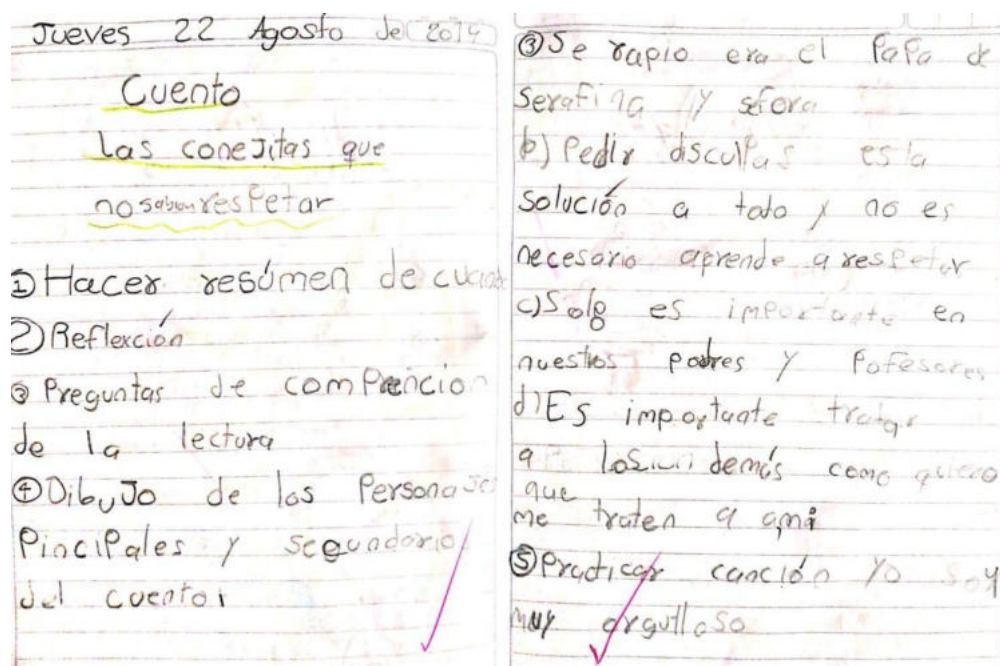 Jueves 22 Agosto del 2019
Cuento
Las conejitas que
no saben respetar
① Hacer resúmen de
② Reflexción
③ Preguntas de comprencion
de la lectura
④ Dibujo de los Personajes
Pincipales y segundario
del cuento
③ Se rapio era el PaPa de
Serafina y sefora
b) Pedir disculpas es la
solución a todo y no es
necesario aprende a respetar
c) Solo es importante en
nuestros padres y Pofesores
d) Es importante tratar
a los demás como quiero
que
me traten a ami
⑤ Practicar canción Yo soy
muy orgulloso